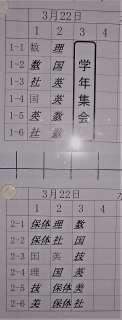 3月22日
1 2 3
1-1 数 理 学年集会
1-2 数 国
1-3 社 英
1-4 国 英
1-5 英 数
1-6 社 数
3月22日
1 2 3
2-1 保体 理 数
2-2 保体 社 国
2-3 国 英 技
2-4 理 国 英
2-5 技 保体 美
2-6 美 保体 社